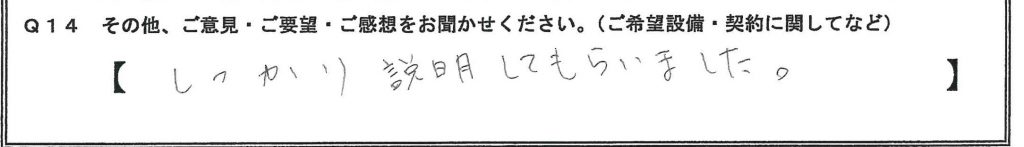 Q14 その他、ご意見・ご要望・ご感想をお聞かせください。(ご希望設備・契約に関してなど)
【 しっかり説明してもらいました。 】